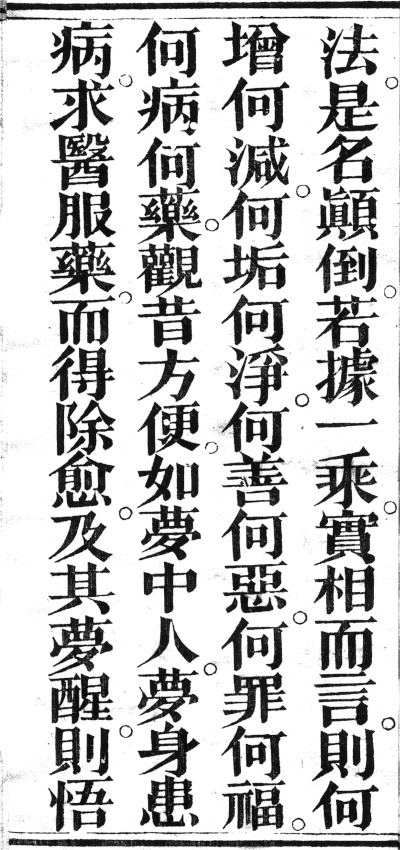 法。是名顚倒。若據一乘。實相而言。則何
增何減。何垢何淨。何善何惡。何罪何福。
何病何藥。觀昔方便。如夢中人。夢身患
病。求醫服藥。而得除愈。及其夢醒。則悟